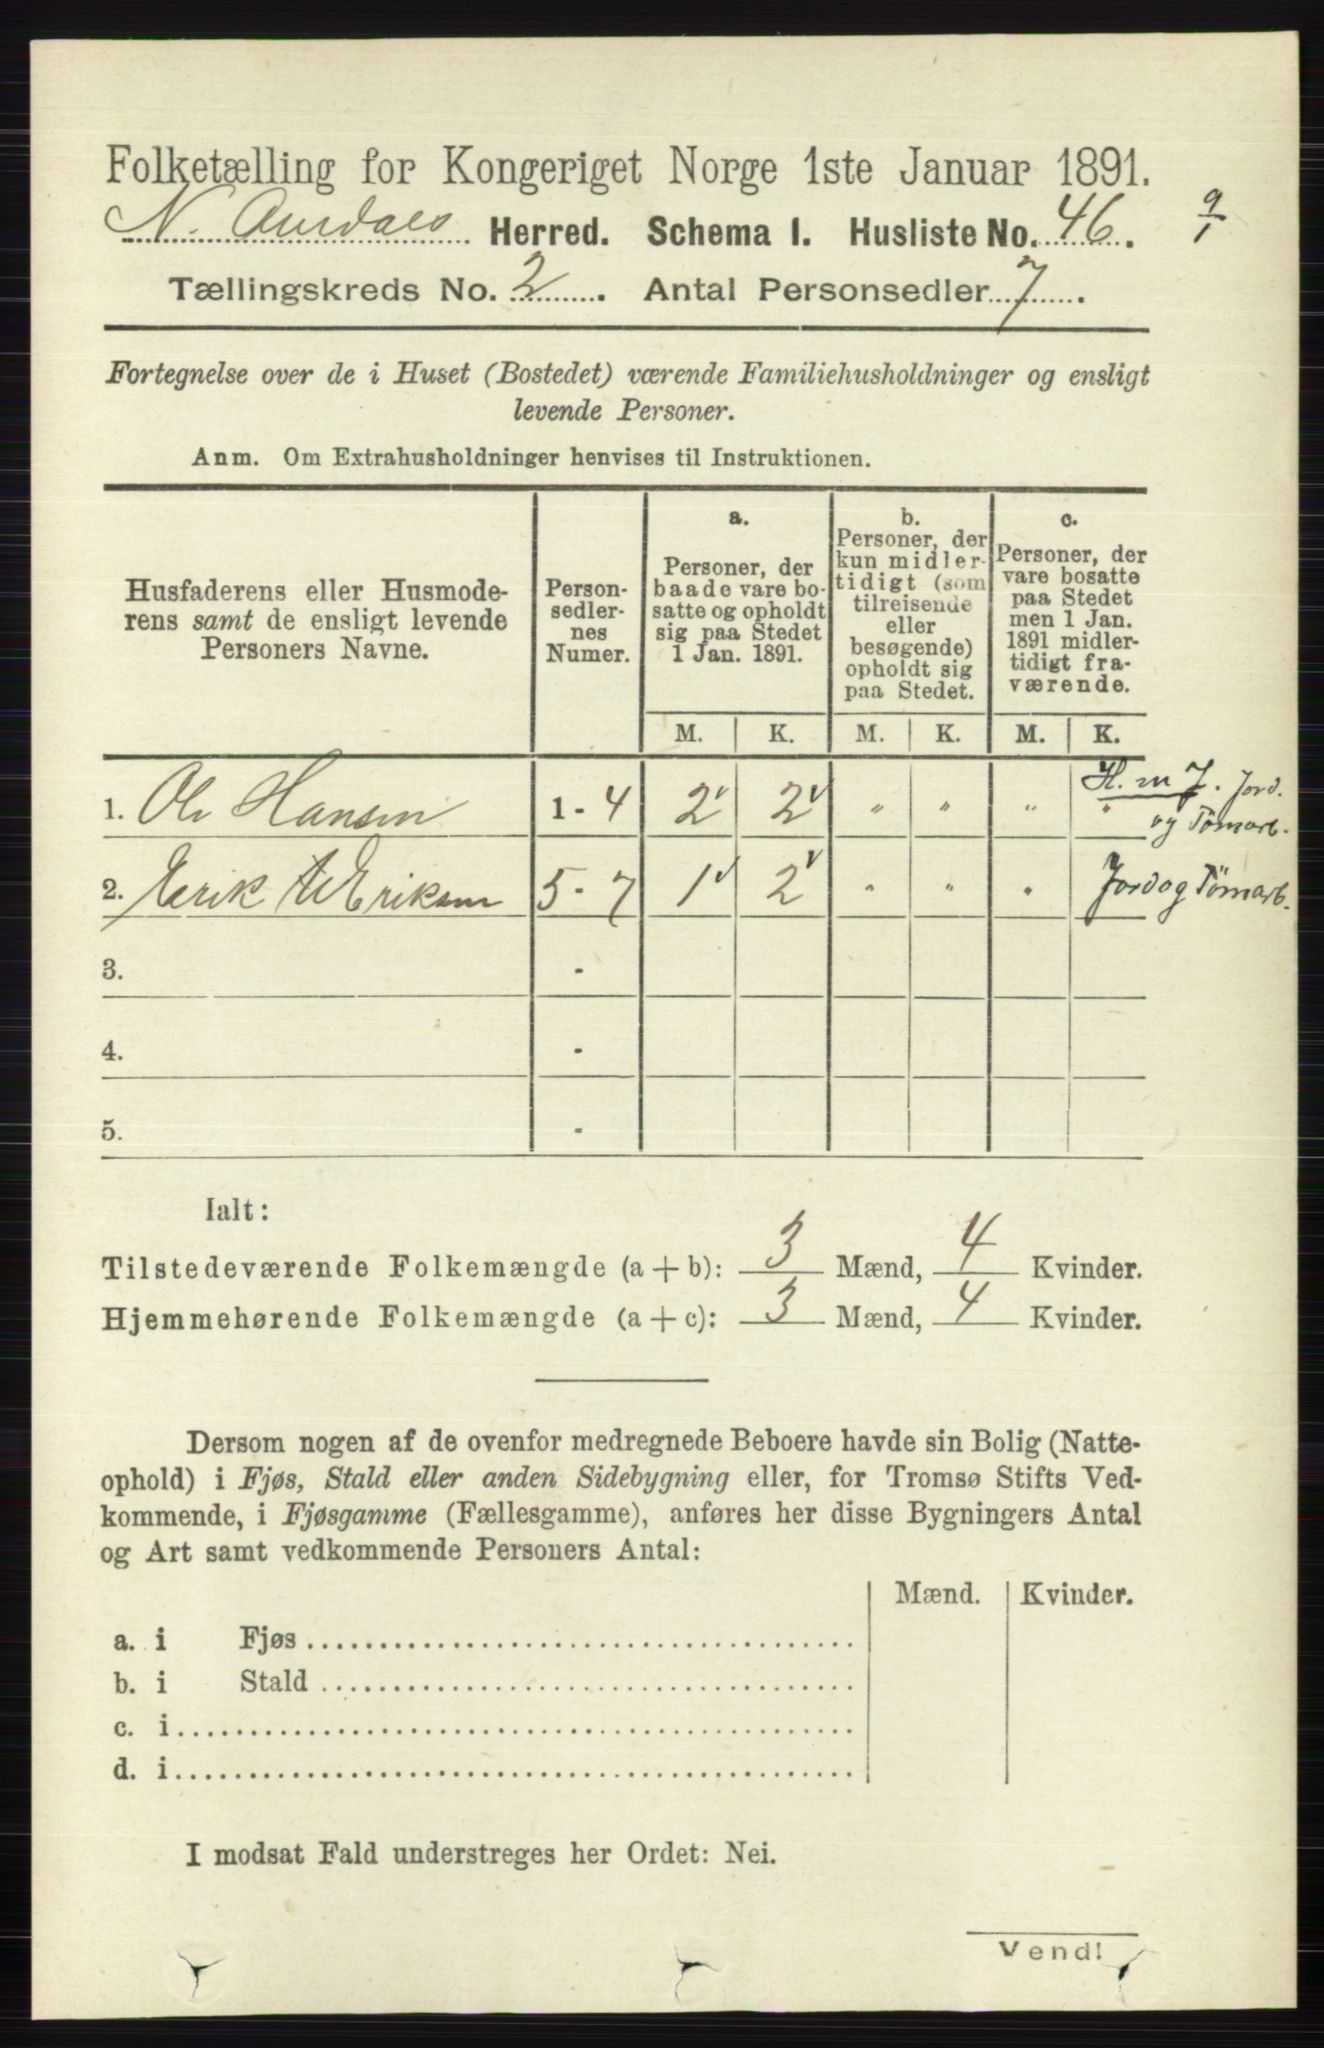 Folketælling for Kongeriget Norge 1ste Januar 1891.
N. Aurdals Herred. Schema 1. Husliste No. 46. 9/1
Tællingskreds No. 2. Antal Personsedler 7.
Fortegnelse over de i Huset (Bostedet) værende Familiehusholdninger og ensligt
levende Personer.
Anm. Om Extrahusholdninger henvises til Instruktionen.
Husfaderens eller Husmode-
rens samt de ensligt levende
Personers Navne.
Person-
sedler-
nes
Numer.
a.
Personer, der
baade vare bo-
satte og opholdt
sig paa Stedet
1 Jan. 1891.
b.
Personer, der
kun midler-
tidigt (som
tilreisende
eller
besøgende)
opholdt sig
paa Stedet.
c.
Personer, der
vare bosatte
paa Stedet
men 1 Jan.
1891 midler-
tidigt fra-
værende.
M. K. M. K. M. K.
1. Ole Hansen 1 - 4 2 2 " " " " H. m J. Jord.
og Tömarb.
2. Erik Eriksen 5 - 7 1 2 " " " Jord og Tömarb.
3. -
4. -
5. -
Ialt:
Tilstedeværende Folkemængde (a + b): 3 Mænd, 4 Kvinder.
Hjemmehørende Folkemængde (a + c): 3 Mænd, 4 Kvinder.
Dersom nogen af de ovenfor medregnede Beboere havde sin Bolig (Natte-
ophold) i Fjøs, Stald eller anden Sidebygning eller, for Tromsø Stifts Ved-
kommende, i Fjøsgamme (Fællesgamme), anføres her disse Bygningers Antal
og Art samt vedkommende Personers Antal:
Mænd. Kvinder.
a. i Fjøs
b. i Stald
c. i
d. i
I modsat Fald understreges her Ordet: Nei.
Vend!